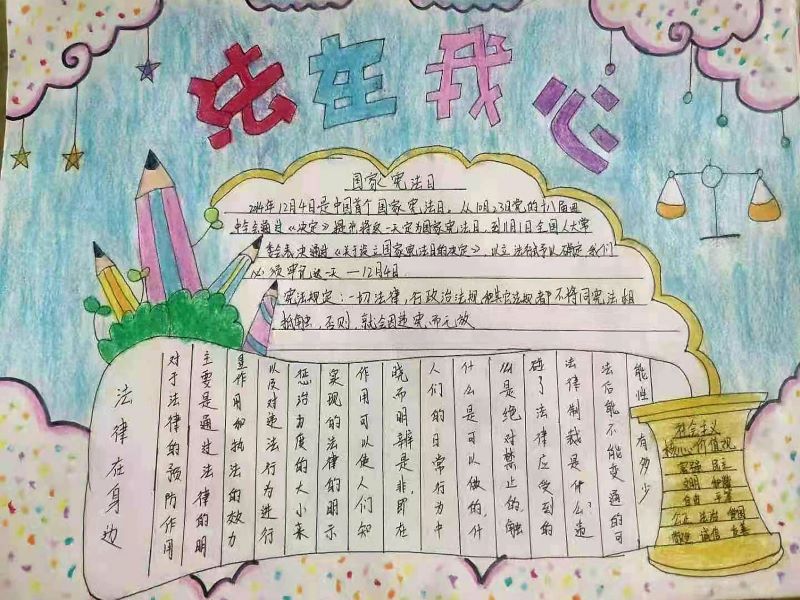 法在我心
国家宪法日
2014年12月4日是中国首个国家宪法日。从10月23日党的十八届四
中全会通过《决定》提出将这一天定为国家宪法日,到11月1日全国人大常
委会表决通过《关于设立国家宪法日的决定》,以立法形式予以确定,我们
必须牢记这一天—12月4日
宪法规定:一切法律,行政法规和其它法规都不得同宪法相
抵触,否则,就会因违宪而无效
法律在身边
对于法律的预防作用
主要是通过法律的明
显作用和执法的效力
以及对违法行为进行
惩治力度的大小来
实现的法律的明示
作用可以使人们知
晓而明辨是非,即在
人们的日常行为中
什么是可以做的,什
么是绝对禁止的,触
碰了法律应受到的
法律制裁是什么?违
法后能不能变通的可
能性有多少
社会主义
核心价值观
富强 民主
文明 和谐
自由 平等
公正 法治 爱国
敬业 诚信 友善